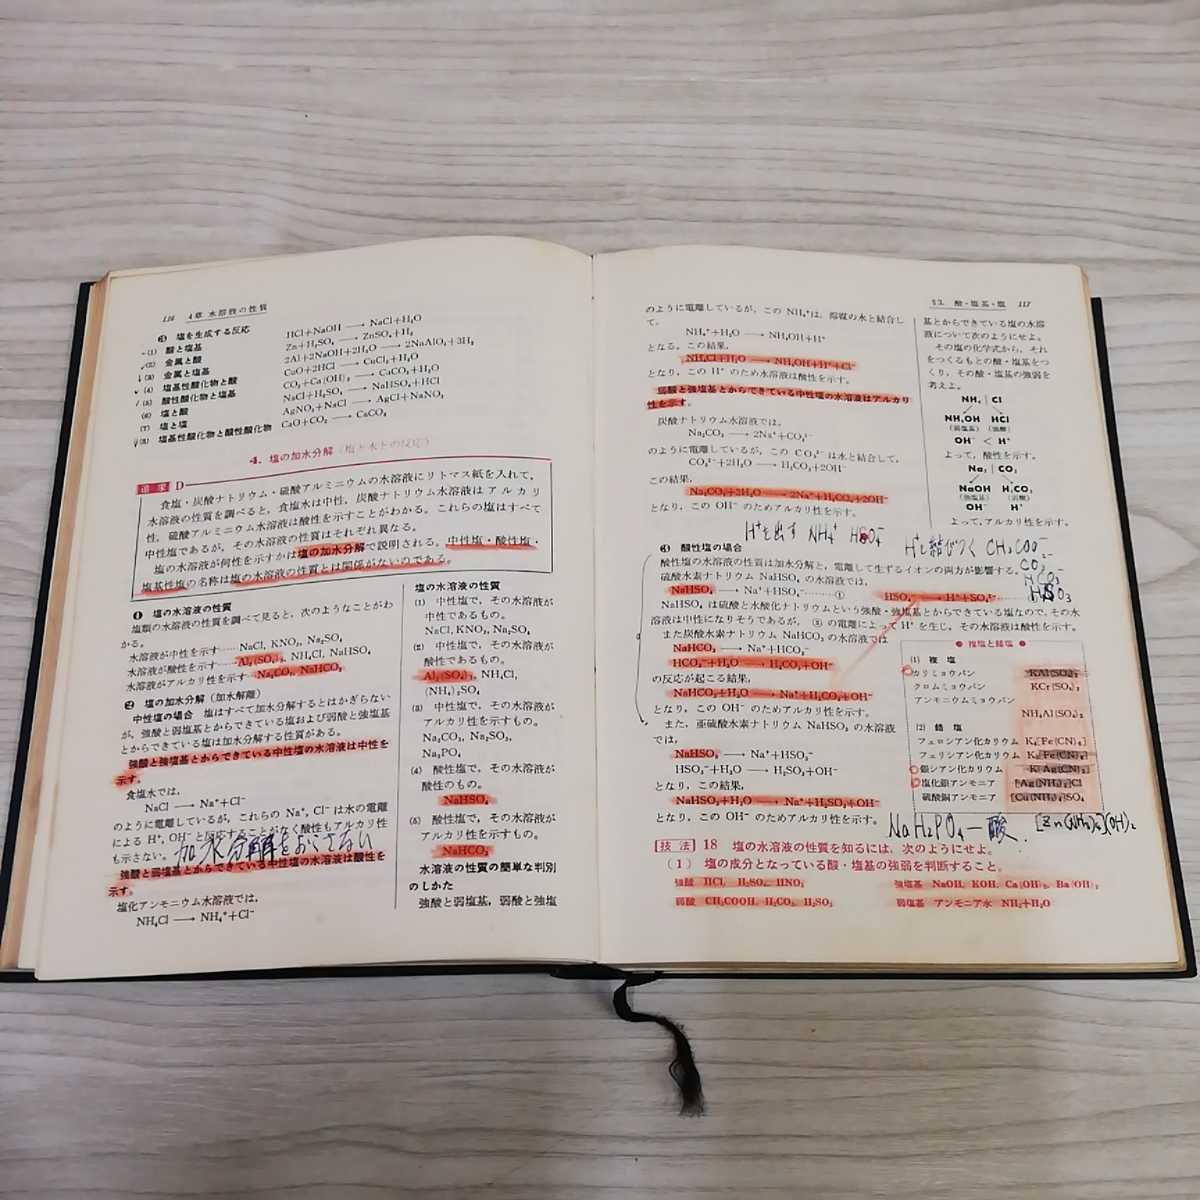 116　4章 水溶液の性質
❸ 塩を生成する反応
(1) 酸と塩基　HCl+NaOH ⟶ NaCl+H₂O
(2) 金属と酸　Zn+H₂SO₄ ⟶ ZnSO₄+H₂
(3) 金属と塩基　2Al+2NaOH+2H₂O ⟶ 2NaAlO₂+3H₂
(4) 塩基性酸化物と酸　CuO+2HCl ⟶ CuCl₂+H₂O
(5) 酸性酸化物と塩基　CO₂+Ca(OH)₂ ⟶ CaCO₃+H₂O
(6) 塩と酸　NaCl+H₂SO₄ ⟶ NaHSO₄+HCl
(7) 塩と塩　AgNO₃+NaCl ⟶ AgCl+NaNO₃
(8) 塩基性酸化物と酸性酸化物　CaO+CO₂ ⟶ CaCO₃
4. 塩の加水分解(塩と水との反応)
D
食塩・炭酸ナトリウム・硫酸アルミニウムの水溶液にリトマス紙を入れて，
水溶液の性質を調べると，食塩水は中性，炭酸ナトリウム水溶液はアルカリ
性，硫酸アルミニウム水溶液は酸性を示すことがわかる。これらの塩はすべて
中性塩であるが，その水溶液の性質はそれぞれ異なる。
塩の水溶液が何性を示すかは塩の加水分解で説明される。中性塩・酸性塩・
塩基性塩の名称は塩の水溶液の性質とは関係がないのである。
❶ 塩の水溶液の性質
塩類の水溶液の性質を調べて見ると，次のようなことがわ
かる。
水溶液が中性を示す……NaCl, KNO₃, Na₂SO₄
水溶液が酸性を示す……Al₂(SO₄)₃, NH₄Cl, NaHSO₄
水溶液がアルカリ性を示す……Na₂CO₃, NaHCO₃
❷ 塩の加水分解(加水解離)
中性塩の場合　塩はすべて加水分解するとはかぎらない
が，強酸と弱塩基とからできている塩および弱酸と強塩基
とからできている塩は加水分解する性質がある。
強酸と強塩基とからできている中性塩の水溶液は中性を
示す。
食塩水では，
NaCl ⟶ Na⁺+Cl⁻
のように電離しているが，これらの Na⁺, Cl⁻ は水の電離
による H⁺, OH⁻ と反応することがなく酸性もアルカリ性
も示さない。加水分解をおこさない
強酸と弱塩基とからできている中性塩の水溶液は酸性を
示す。
塩化アンモニウム水溶液では，
NH₄Cl ⟶ NH₄⁺+Cl⁻
塩の水溶液の性質
(1) 中性塩で，その水溶液が
中性であるもの。
NaCl, KNO₃, Na₂SO₄
(2) 中性塩で，その水溶液が
酸性であるもの。
Al₂(SO₄)₃, NH₄Cl,
(NH₄)₂SO₄
(3) 中性塩で，その水溶液が
アルカリ性を示すもの。
Na₂CO₃, Na₂SO₃,
Na₃PO₄
(4) 酸性塩で，その水溶液が
酸性のもの。
NaHSO₄
(5) 酸性塩で，その水溶液が
アルカリ性を示すもの。
NaHCO₃
水溶液の性質の簡単な判別
のしかた
強酸と弱塩基，弱酸と強塩
酸・塩基・塩　117
のように電離しているが，この NH₄⁺は，溶媒の水と結合し
て，
NH₄⁺+H₂O ⟶ NH₄OH+H⁺
となる。この結果，
NH₄Cl+H₂O ⟶ NH₄OH+H⁺+Cl⁻
となり，この H⁺ のため水溶液は酸性を示す。
弱酸と強塩基とからできている中性塩の水溶液はアルカリ
性を示す。
炭酸ナトリウム水溶液では，
Na₂CO₃ ⟶ 2Na⁺+CO₃²⁻
のように電離しているが，この CO₃²⁻ は水と結合して，
CO₃²⁻+2H₂O ⟶ H₂CO₃+2OH⁻
この結果，
Na₂CO₃+2H₂O ⟶ 2Na⁺+H₂CO₃+2OH⁻
となり，この OH⁻ のためアルカリ性を示す。
基とからできている塩の水溶
液について次のようにせよ。
その塩の化学式から，それ
をつくるもとの酸・塩基をつ
くり，その酸・塩基の強弱を
考えよ。
NH₄｜Cl
NH₄OH　HCl
(弱塩基)　(強酸)
OH⁻ < H⁺
よって，酸性を示す。
Na₂｜CO₃
NaOH　H₂CO₃
(強塩基)　(弱酸)
OH⁻　H⁺
よって，アルカリ性を示す。
H⁺を出す NH₄⁺ HSO₄⁻
H⁺と結びつく CH₃COO⁻
CO₃²⁻
HCO₃⁻
HSO₃
❸ 酸性塩の場合
酸性塩の水溶液の性質は加水分解と，電離して生ずるイオンの両方が影響する。
硫酸水素ナトリウム NaHSO₄ の水溶液では，
NaHSO₄ ⟶ Na⁺+HSO₄⁻……①　HSO₄⁻ ⟶ H⁺+SO₄²⁻……
NaHSO₄ は硫酸と水酸化ナトリウムという強酸・強塩基とからできている塩なので，その水
溶液は中性になりそうであるが，②の電離によって H⁺ を生じ，その水溶液は酸性を示す。
また炭酸水素ナトリウム NaHCO₃ の水溶液では
NaHCO₃ ⟶ Na⁺+HCO₃⁻
HCO₃⁻+H₂O ⟶ H₂CO₃+OH⁻
の反応が起こる結果，
NaHCO₃+H₂O ⟶ Na⁺+H₂CO₃+OH⁻
となり，この OH⁻ のためにアルカリ性を示す。
また，亜硫酸水素ナトリウム NaHSO₃ の水溶液
では，
NaHSO₃ ⟶ Na⁺+HSO₃⁻
HSO₃⁻+H₂O ⟶ H₂SO₃+OH⁻
となり，この結果，
NaHSO₃+H₂O ⟶ Na⁺+H₂SO₃+OH⁻
となり，この OH⁻ のためアルカリ性を示す。
● 複塩と錯塩 ●
(1) 複塩
カリミョウバン　KAl(SO₄)₂
クロムミョウバン　KCr(SO₄)₂
アンモニウムミョウバン
NH₄Al(SO₄)₂
(2) 錯塩
フェロシアン化カリウム　K₄[Fe(CN)₆]
フェリシアン化カリウム　K₃[Fe(CN)₆]
銀シアン化カリウム　K[Ag(CN)₂]
塩化銀アンモニア　[Ag(NH₃)₂]Cl
硫酸銅アンモニア　[Cu(NH₃)₄]SO₄
NaH₂PO₄ー酸.　[Zn(NH₃)₄](OH)₂
[技法] 18　塩の水溶液の性質を知るには，次のようにせよ。
(1) 塩の成分となっている酸・塩基の強弱を判断すること。
強酸 HCl, H₂SO₄, HNO₃　強塩基 NaOH, KOH, Ca(OH)₂, Ba(OH)₂
弱酸 CH₃COOH, H₂CO₃, H₂SO₃　弱塩基 アンモニア水 NH₃+H₂O